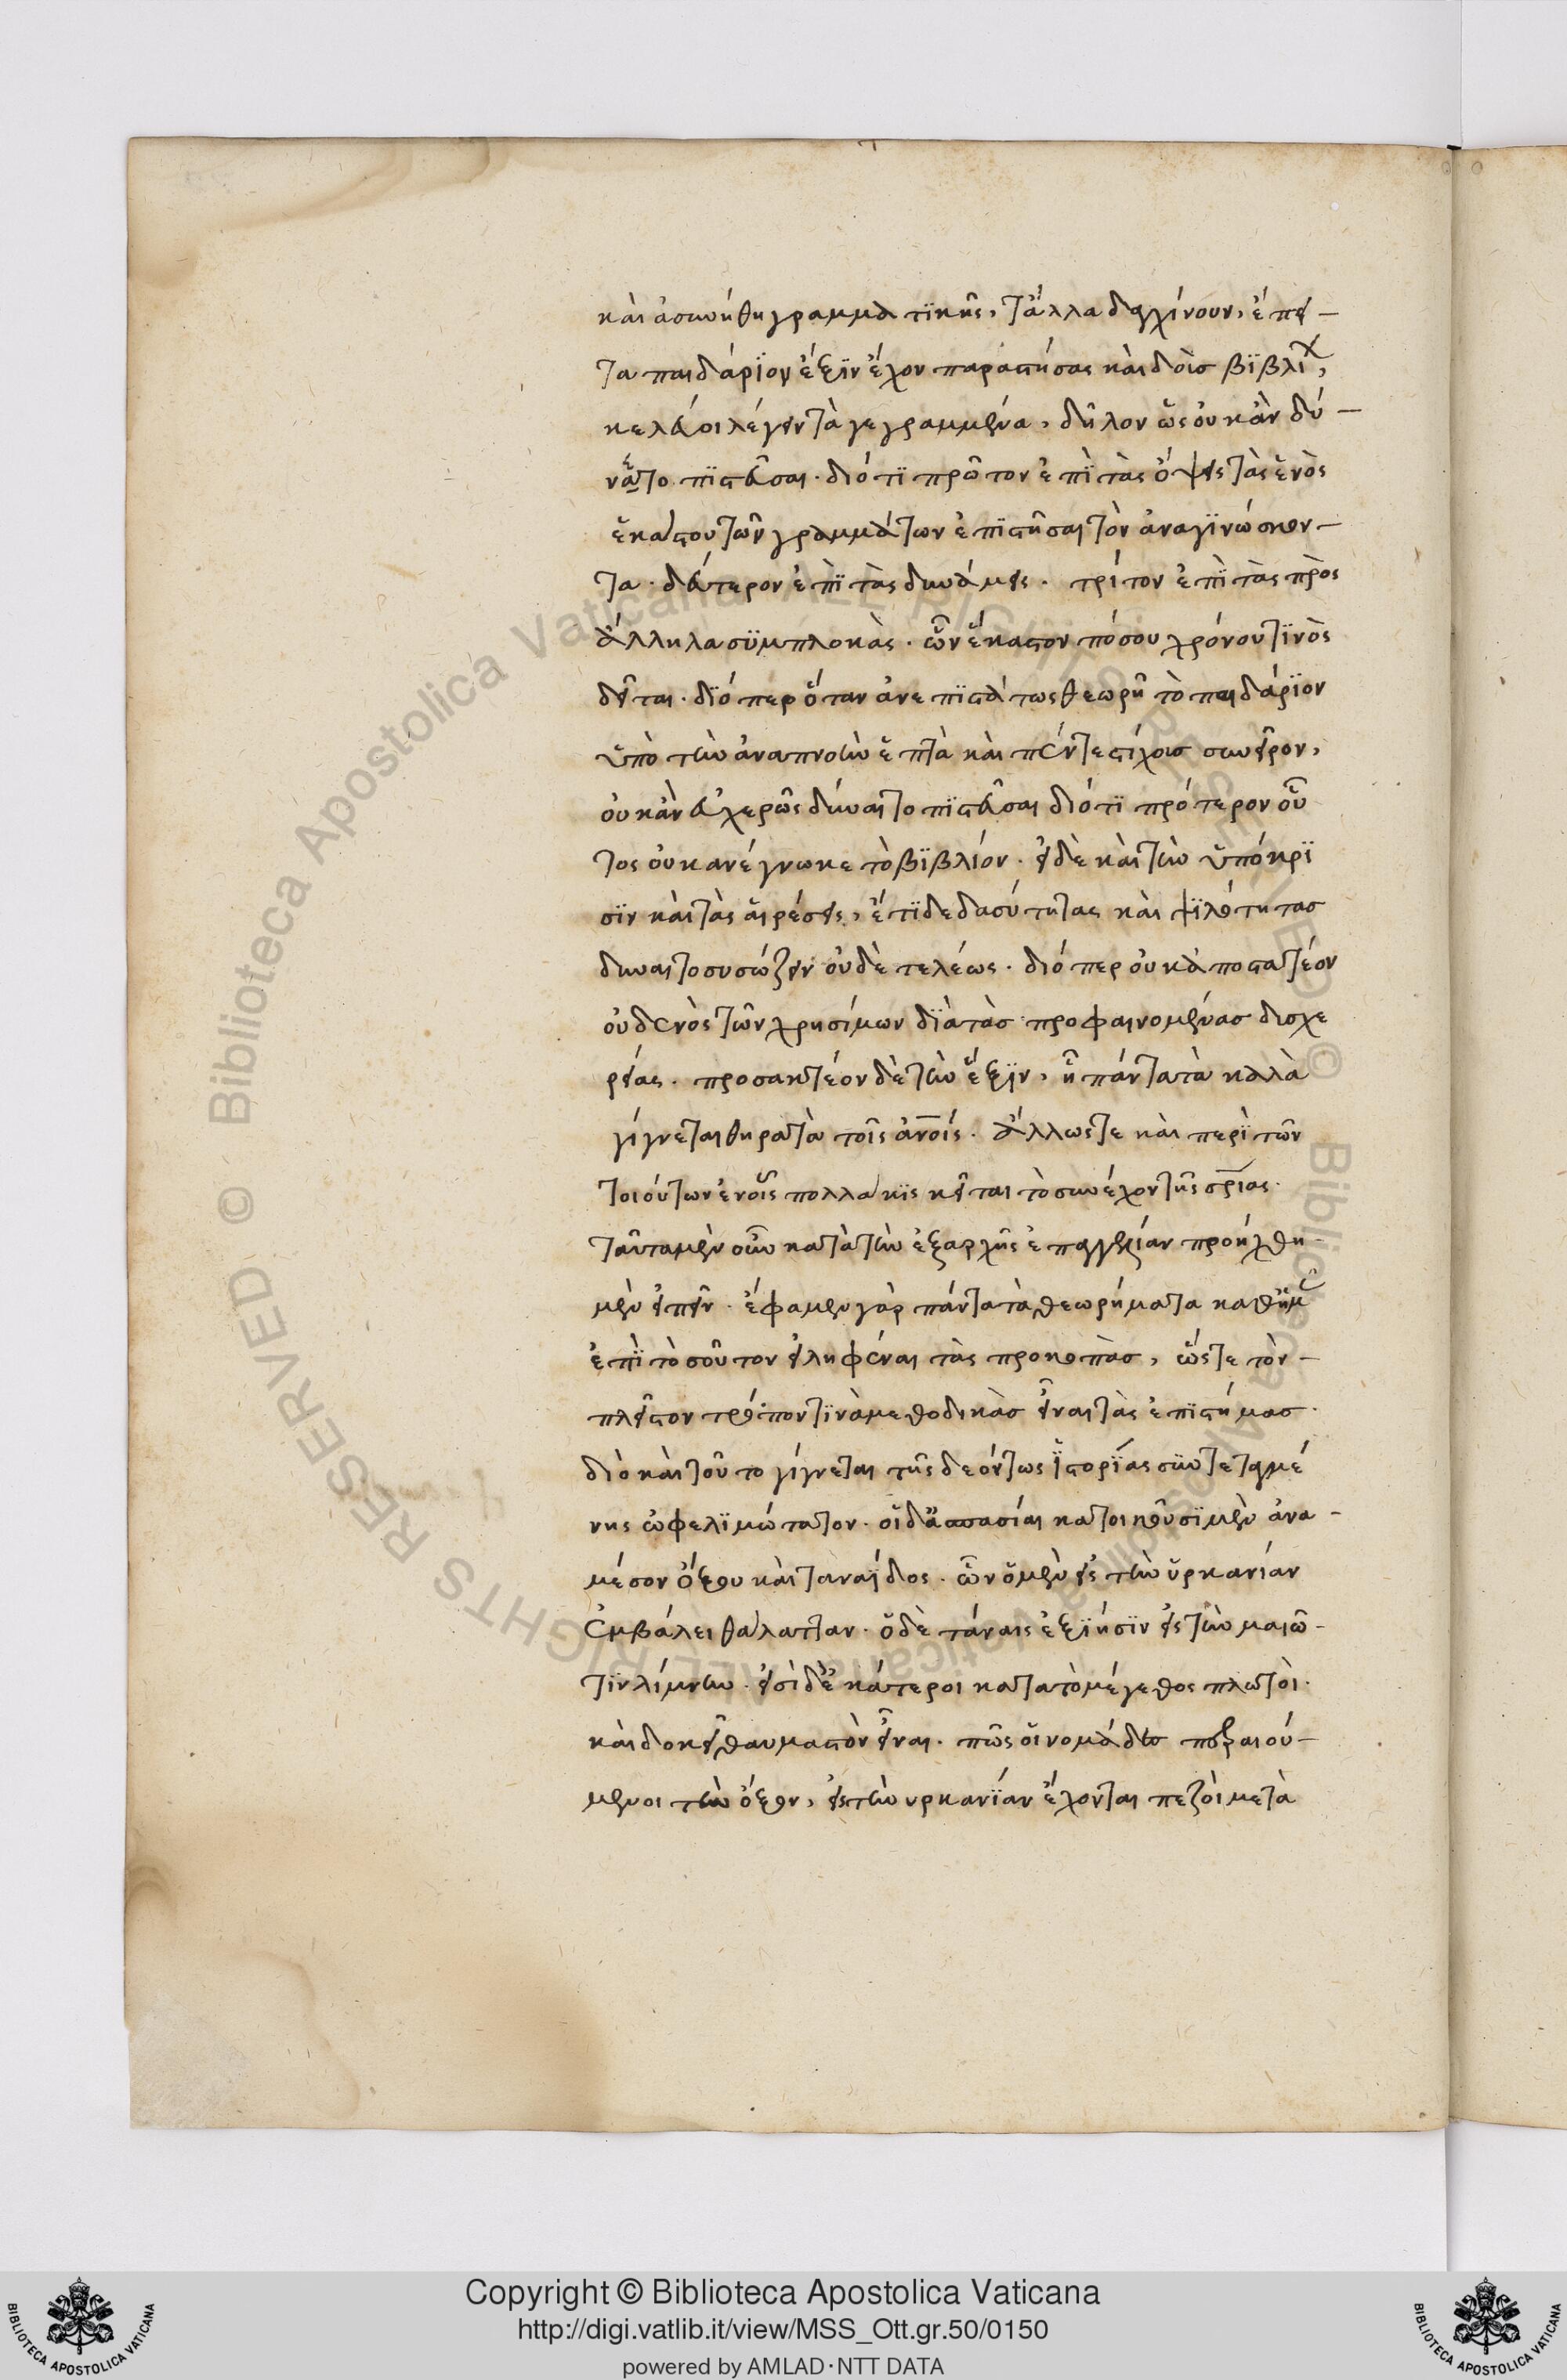 καὶ ἀσυνήθη γραμματϊκῆς, τἆλλα δ' ἀγχίνουν, ἔπει—
τα παιδάρϊον ἕξϊν ἔχον παραστήσας καὶ δοὺς βϊβλί,
κελεύοι λέγειν τὰ γεγραμμένα, δῆλον ὡς οὐκ ἂν δύ—
ναιτο πϊστεῦσαι. διότϊ πρῶτον ἐπὶ τὰς ὄψεις τὰς ἑνὸς
ἑκάστου τῶν γραμμάτων ἐπϊστῆσαι τὸν ἀναγϊνώσκον—
τα. δεύτερον ἐπὶ τὰς δυνάμεις. τρίτον ἐπὶ τὰς πρὸς
ἄλληλα συμπλοκὰς. ὧν ἕκαστον πόσου χρόνου τϊνὸς
δεῖται. δϊόπερ ὅταν ἀνεπϊστάτως θεωρῆ τὸ παιδάρϊον
ὑπὸ τὴν ἀναπνοὴν ἑπτὰ καὶ πέντε στίχους συνεῖρον,
οὐκ ἂν εὐχερῶς δύναιτο πϊστεῦσαι διότϊ πρότερον οὗ
τος οὐκ ἀνέγνωκε τὸ βϊβλίον. εἰ δὲ καὶ τὴν ὑπόκρϊ
σϊν καὶ τὰς αἱρέσεις, ἔτϊ δὲ δασύτητας καὶ ψϊλότητας
δυναιτο συσώζειν οὐδὲ τελέως. διόπερ οὐκ ἀποστατέον
οὐδενὸς τῶν χρησίμων δϊὰ τὰς προφαινομένας δυσχε
ρείας. προσακτέον δὲ τὴν ἕξϊν, ᾗ πάντα τὰ καλὰ
γίγνεται θηρατὰ τοῖς ἀνοίς. ἄλλως τε καὶ περὶ τῶν
τοιούτων ἐν οἷς πολλάκϊς κεῖται τὸ συνέχον τῆς σρίας.
ταῦτα μὲν οὖν κατὰ τὴν ἐξαρχῆς ἐπαγγελίαν προήχθη
μεν εἰπεῖν. ἔφαμεν γὰρ πάντα τὰ θεωρήματα καθημ
ἐπὶ τοσοῦτον εἰληφέναι τὰς προκοπὰς, ὥστε τὸν—
πλεῖστον τρόπον τϊνὰ μεθοδικὰς εἶναι τὰς ἐπϊστήμας.
διὸ καὶ τοῦτο γίγνεται τῆς δεόντως ἱστορίας συντεταγμέ
νης ὠφελϊμώτατον. οἱ δ' ἀσπασίαι κατοικοῦσϊ μὲν ἀνα—
μέσον ὄξου καὶ ταναΐδος. ὧν ὁ μὲν εἰς τὴν ὑρκανίαν
ἐμβάλει θάλατταν. ὁ δὲ τάναις ἐξϊήσϊν εἰς τὴν μαιῶ—
τϊν λίμνην. εἰσὶ δ' ἑκάτεροι κατὰ τὸ μέγεθος πλωτοὶ.
καὶ δοκεῖ θαυμαστὸν εἶναι. πῶς οἱ νομάδες περαιού—
μενοι τὴν ὄξον, εἰς τὴν υρκανΐαν ἔχονται πεζοὶ μετὰ
Copyright © Biblioteca Apostolica Vaticana
http://digi.vatlib.it/view/MSS_Ott.gr.50/0150
powered by AMLAD·NTT DATA